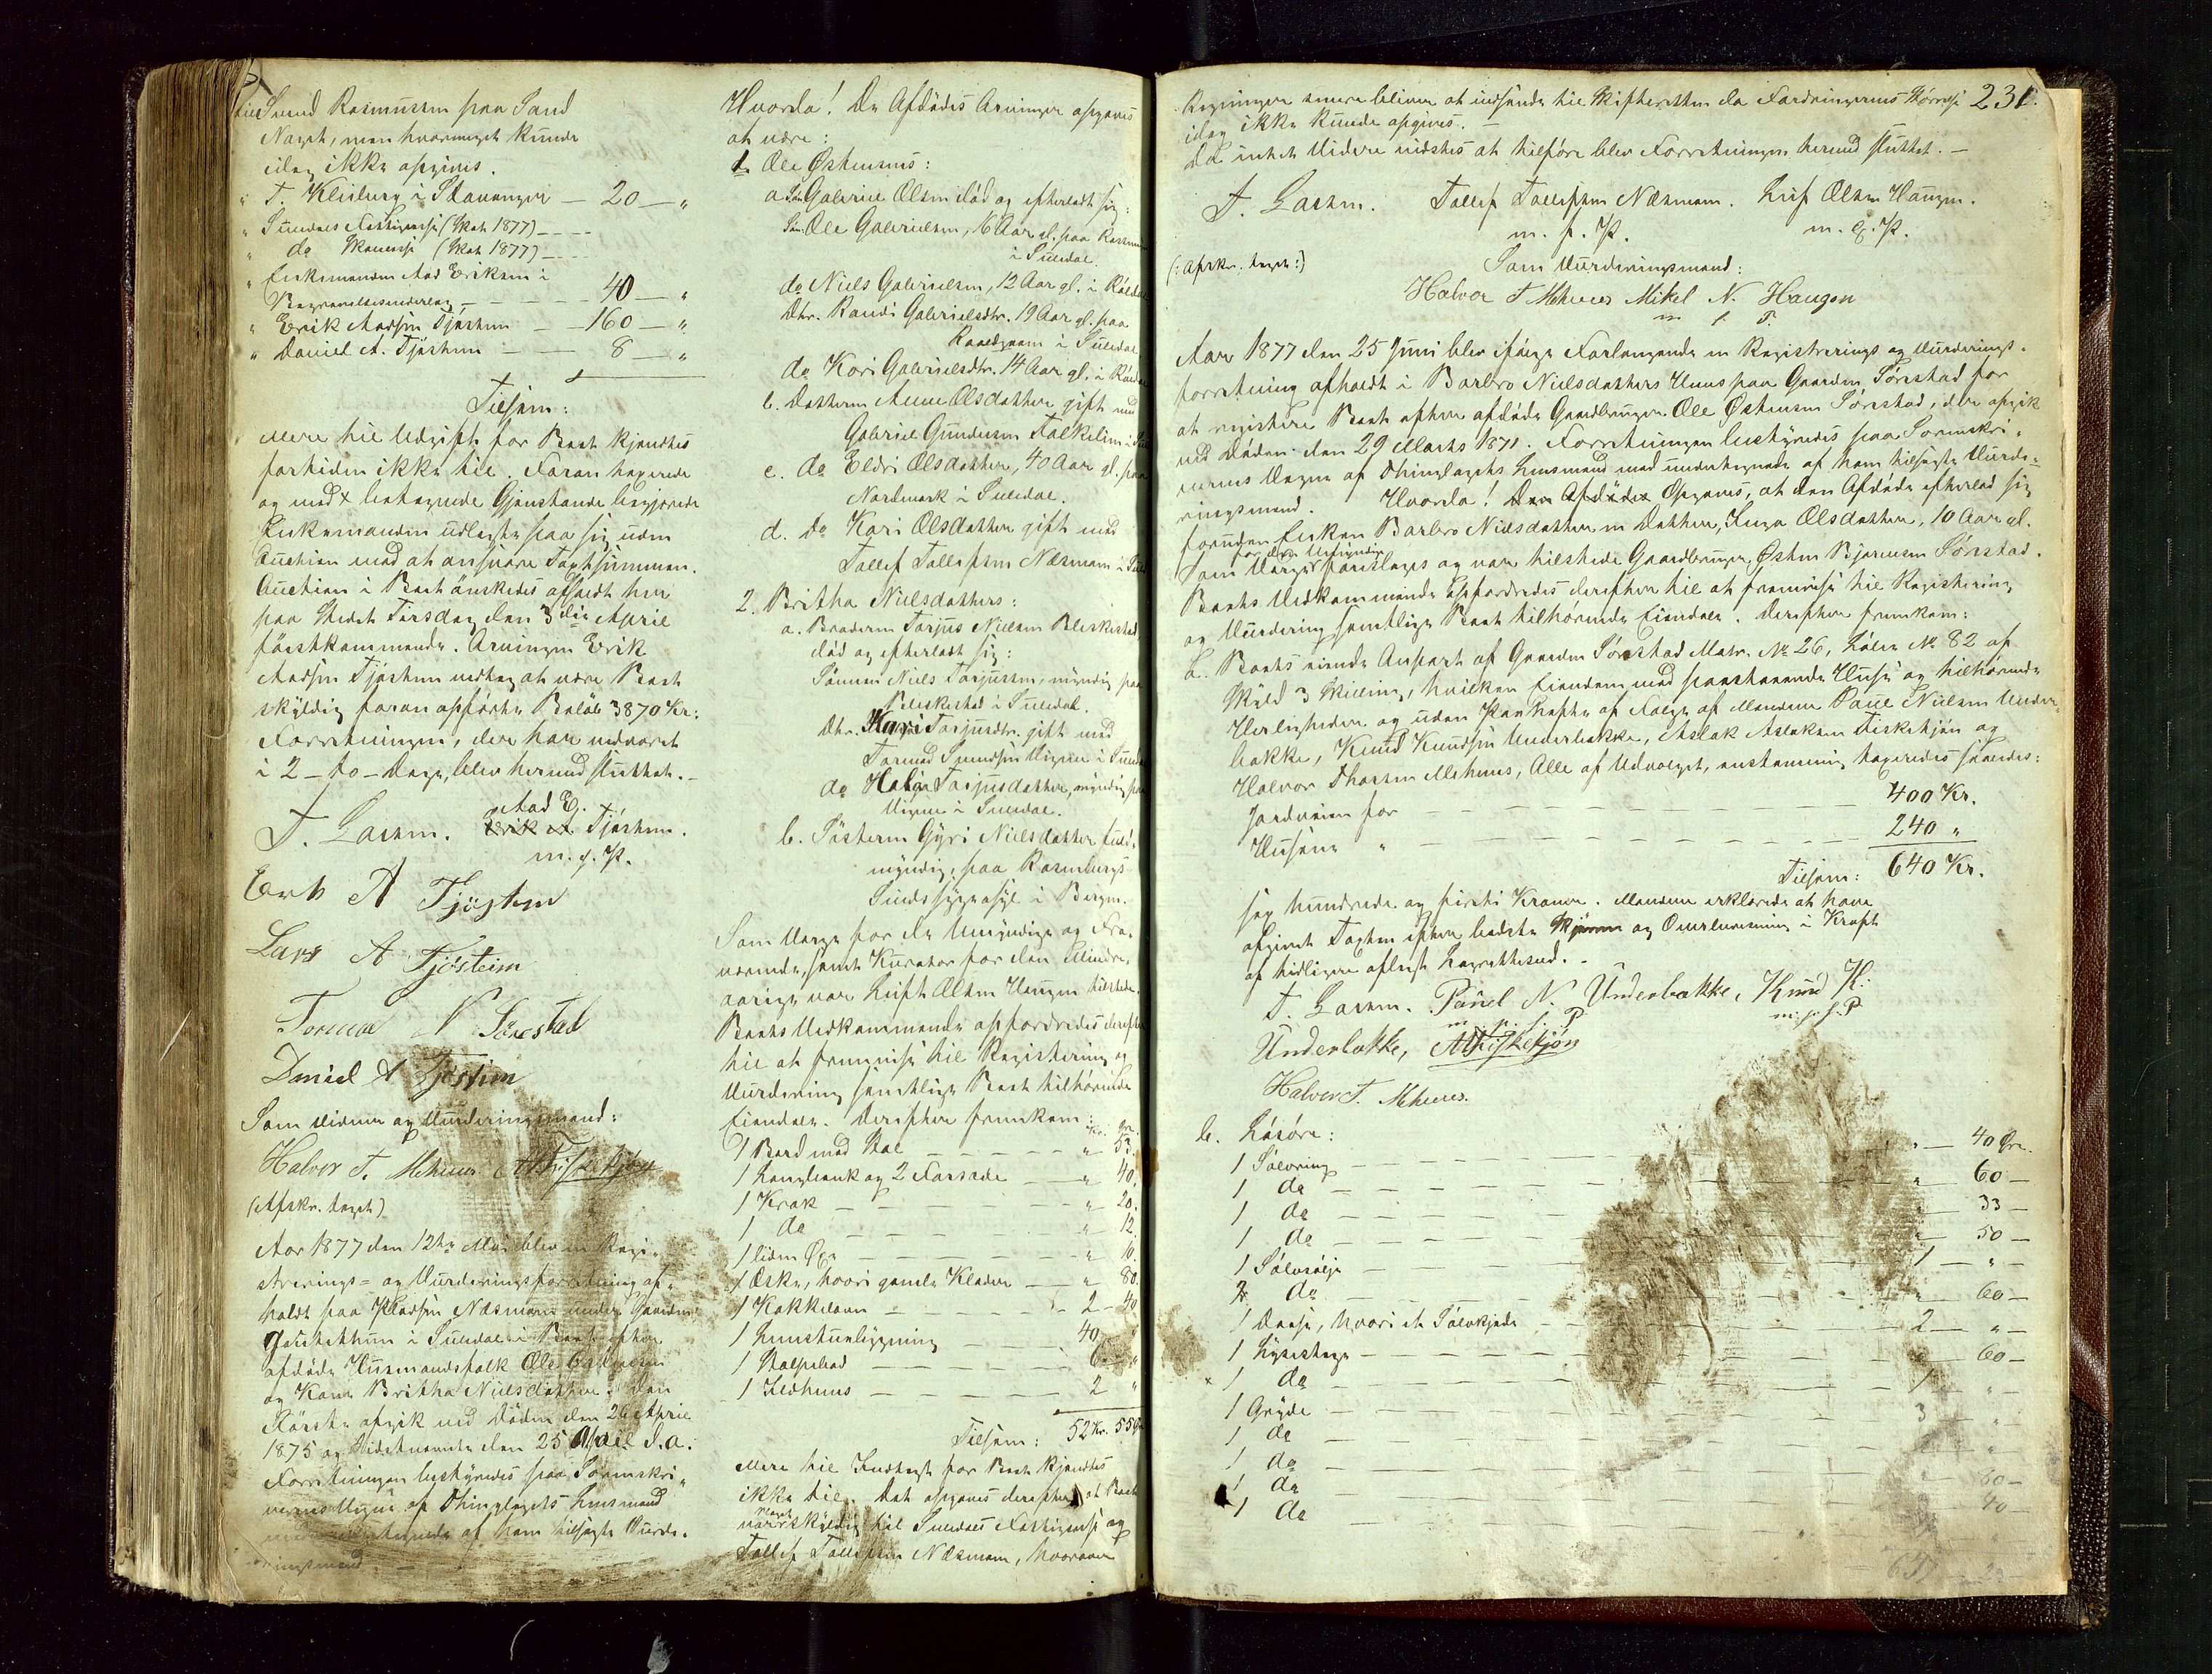 til Svend Rasmussen paa Sand
Noget, men hvormeget kunde
idag ikke opgives.
" T. Kleiberg i Stavanger — 20 — "
" Suledals Fattigcasse (Skat 1877) — — — —
" do Skolecasse (Skat 1877) — — — —
" Enkemanden Aad Eriksen i
Begravelsesudlæg — — — — 40 — "
" Erik Aadsen Tjøstem — 160 — "
" Daniel A. Tjøstem — — — 8 — "
Tilsam:
Mere til Udgift for Boet kjendtes
fortiden ikke til. Foran taxerede
og med x betegnede Gjenstande begjærede
Enkemanden udlagte paa sig uden
Auction mod at ansvare Taxtsummen.
Auction i Boet ønskedes afholdt her
paa Stedet Torsdag den 3die April
førstkommende. Arvingen Erik
Aadsen Tjøstem vedtog at være Boet
skyldig foran opførte Beløb 3870 Kr:
Forretningen, der har medvaret
i 2 – to – Dage, blev hermed sluttet. —
Aad E.
T. Larsen. Erik A. Tjøstem.
m. f. P.
Erik A Tjøstem
Lars A Tjøsteim
Tormod N Sørestad
Daniel A Tjøstem
Som Vidner og Vurderingsmænd:
Halvor T. Mehuus A Fisketjøn
(Afskr. taget)
Aar 1877 den 12te Mai blev en Regi-
strerings- og Vurderingsforretning af-
holdt paa Pladsen Næsmoen under Gaarden
i Suledal i Boet efter
afdøde Husmandsfolk Ole Østensen
og Kone Britha Nielsdatter. Den
Første afgik ved Døden den 26 April
1875 og Sidstnævnte den 25 April d. a.
Forretningen bestyredes paa Sorenskri-
verens Vegne af Thinglagets Lensmand
med undertegnede af ham tilsagte Vurde-
ringsmænd. —
Hvorda! De Afdødes Arvinger opgaves
at være:
1. Ole Østensens:
a. Søn Gabriel Olsen død og efterladt sig:
Søn Ole Gabrielsen, 16 Aar gl. paa
i Suledal.
do Niels Gabrielsen, 12 Aar gl. i
Dtr. Randi Gabrielsdtr. 19 Aar gl. paa
i Suledal
do Kari Gabrielsdtr. 14 Aar gl. i
b. Datteren Anne Olsdatter gift med
Gabriel Gundersen Falkelin i
c. do Eldri Olsdatter, 40 Aar gl. paa
Nordmork i Suledal.
d. do Kari Olsdatter gift med
Tollef Tollefsen Næsmoen i
2. Britha Nielsdatters:
a. Broderen Torjus Nielsen Bleskestad
død og efterladt sig:
Sønnen Niels Torjussen, myndig paa
Bleskestad i Suledal.
Dtr. Kari Torjusdtr. gift med
Tormod Svendsen Vigene i
do Helga Torjusdatter, myndig paa
Vigene i Suledal.
b. Søsteren Gyri Nielsdatter fuld-
myndig, paa Rosenbergs
Sindssygeasyl i Bergen.
Som Værge for de Umyndige og Fra-
værende, samt Kurator for den Mindre-
aarige var Leif Olsen Haugen tilstede.
Boets Vedkommende opfordredes derefter
til at fremvise til Registering og
Vurdering samtlige Boet tilhørende
Eiendele. Derefter fremkom: Kr. Øre.
1 Bord med Stol — — — " 53.
1 Langbænk og 2 Forsæde — " 40.
1 Krak — — — — " 20.
1 do — — — — " 12.
1 liden Øxe — — — " 10.
1 Æske, hvori gamle Klæder — " 80.
1 Kakkelovn — — — 2 – 40
1 — — — 40 "
1 — — — 6 "
1 Ildhuus — — — 2 "
Tilsam: 52 Kr. 55 Øre
Mere til Indtægt for Boet kjendtes
ikke til. Det opgaves derefter at Boet
Noget
var skyldig til Suledals Fattigcasse og
Tollef Tollefsen Næsmoen, hvorover
231.
Regninger senere bliver at indsende til Skifteretten da Fordringernes Størrelse
idag ikke kunde opgives. —
Da intet Videre vidstes at tilføre blev Forretningen hermed sluttet. —
T. Larsen. Tollef Tollefsen Næsmoen. Leif Olsen Haugen.
m. f. P. m. f. P.
(: Afskr. taget :) Som Vurderingsmænd:
Halvor T Mehuus Mikel N. Haugen
m f P.
Aar 1877 den 25 Juni blev ifølge Forlangende en Registrerings og Vurderings-
forretning afholdt i Barbro Nielsdatters Huus paa Gaarden Sørestad for
at registere Boet efter afdøde Gaardbruger Ole Østensen Sørestad, der afgik
ved Døden den 29 Marts 1871. Forretningen bestyredes paa Sorenskri-
verens Vegne af Thinglagets Lensmand med undertegnede af ham tilsagte Vurde-
ringsmænd. Hvorda! Den Afdødes Opgaves, at den Afdøde efterlod sig
foruden Enken Barbro Nielsdatter en Datter, Inga Olsdatter, 10 Aar gl.
for den Umyndige
Som Værge foreslages og var tilstede Gaardbruger Østen Bjørnsen Sørestad.
Boets Vedkommende opfordredes derefter til at fremvise til Registering
og Vurdering samtlige Boet tilhørende Eiendele. Derefter fremkom:
a. Boets eiende Anpart af Gaarden Sørestad Matr. No 26, Løbe No 82 af
Skyld 3 Skilling, hvilken Eiendom med paastaaende Huse og tilhørende
Herligheder og uden Panthefte af Følge af Mændene Poul Nielsen Under-
bakke, Knud Knudsen Underbakke, Aslak Aslaksen Fisketjøn og
Halvor Thorsen Mehuus, Alle af Udvalget, enstemmig taxeredes saaledes:
Jordveien for — — — — — — 400 Kr.
Husene " — — — — — — 240 "
Tilsam: 640 Kr.
sex hundrede og firti Kroner. Mændene erklærede at have
afgivet Taxten efter bedste Skjøn og Overbeviisning i Kraft
af tidligere aflagt Lagretteseed. —
T. Larsen. Paul N. Underbakke, Knud K.
m. p. f. P m. f. f. P
Underbakke, A Fisketjøn
Halvor T. Mehuus.
b. Løsøre:
1 Sølvring — — — " — 40 Øre.
1 do — — — " — 60 —
1 do — — — " — 33 —
1 do — — — " — 50 —
1 Sølvsølje — — — 1 — " —
2 do — — — " 60 —
1 Daase, hvori et Sølvkjæde — — 2 — " —
1 Lysestage — — — " 60 —
1 do — — — 1 " —
1 Gryde — — — 3 "
1 do — — — "
1 do — — — 80 —
1 do — — — 40 —
1 do — — —
637 23 —